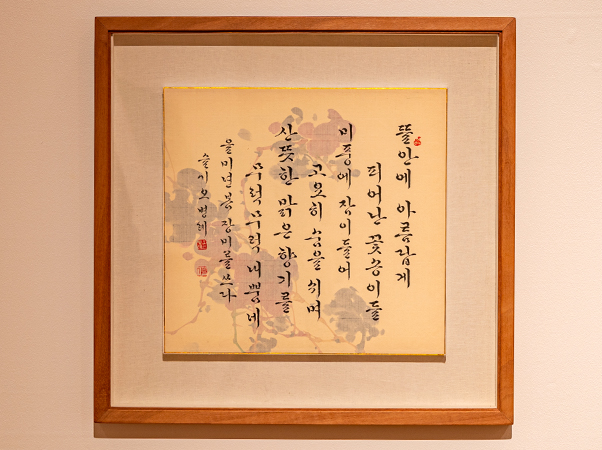 뜰안에 아름답게
피어난 꽃송이들
미풍에 잠이들어
고요히 숨을 쉬며
산뜻한 맑은향기를
무럭무럭 내뿜네
을미년 봄 장미를 쓰다
슬기 오병례